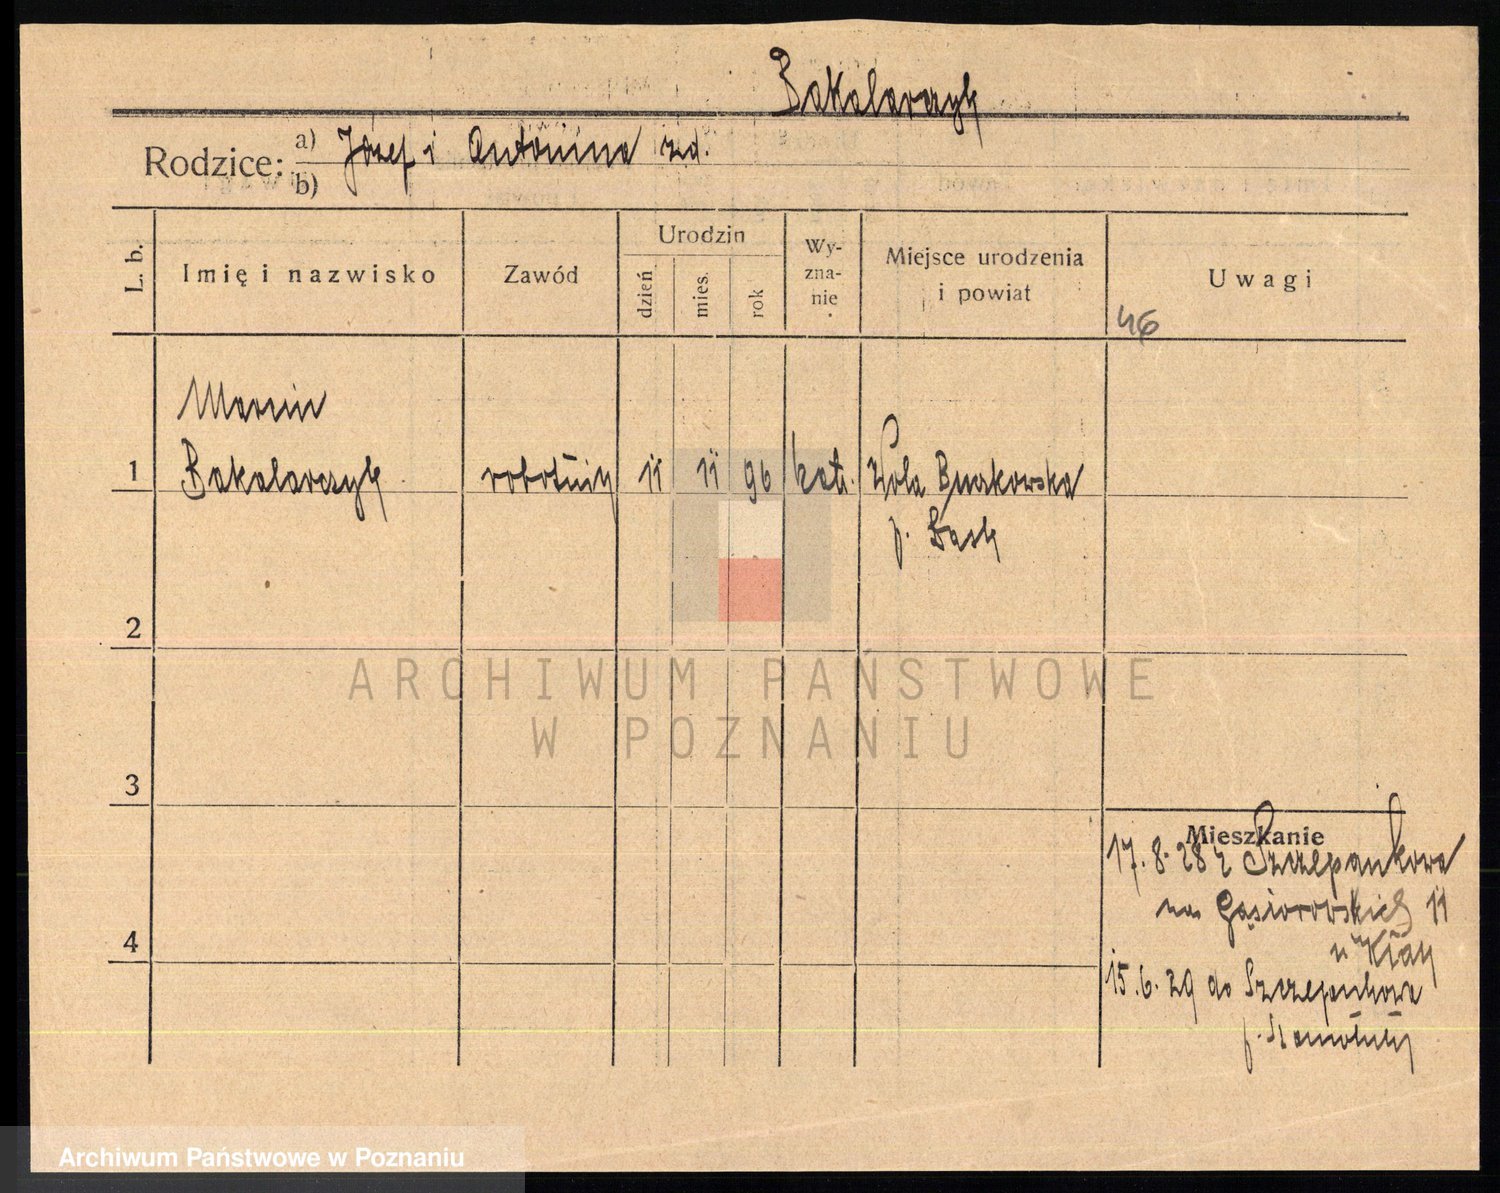 Bakalarczyk
Rodzice: a) Józef i Antonina zd.
b)
L. b.
Imię i nazwisko
Zawód
Urodzin
dzień
mies.
rok
Wy-
zna-
nie
Miejsce urodzenia
i powiat
Uwagi
46
Marcin
1 Bakalarczyk robotnik 11 11 96 kat. Wola
2
ARCHIWUM PAŃSTWOWE
W POZNANIU
3
Mieszkanie
17.8.28 z Szczepankowa
na Gąsiorowskich 11
4
15.6.29 do Szczepankowa
p. Szamotuły
Archiwum Państwowe w Poznaniu